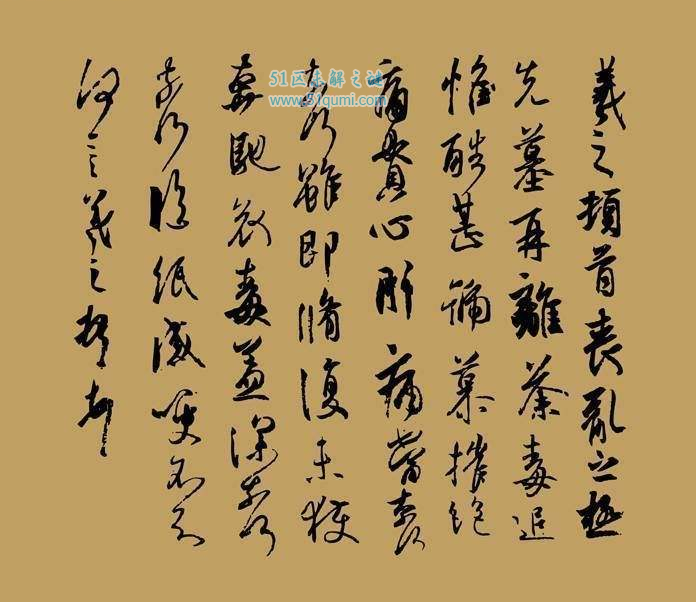 51区未解之谜
www.51qumi.com
羲之頓首喪亂之極
先墓再離荼毒追
惟酷甚號慕摧絕
痛貫心肝痛當奈何
奈何雖即脩復未獲
奔馳哀毒益深奈何
奈何臨紙感哽不知
何言羲之頓首頓首